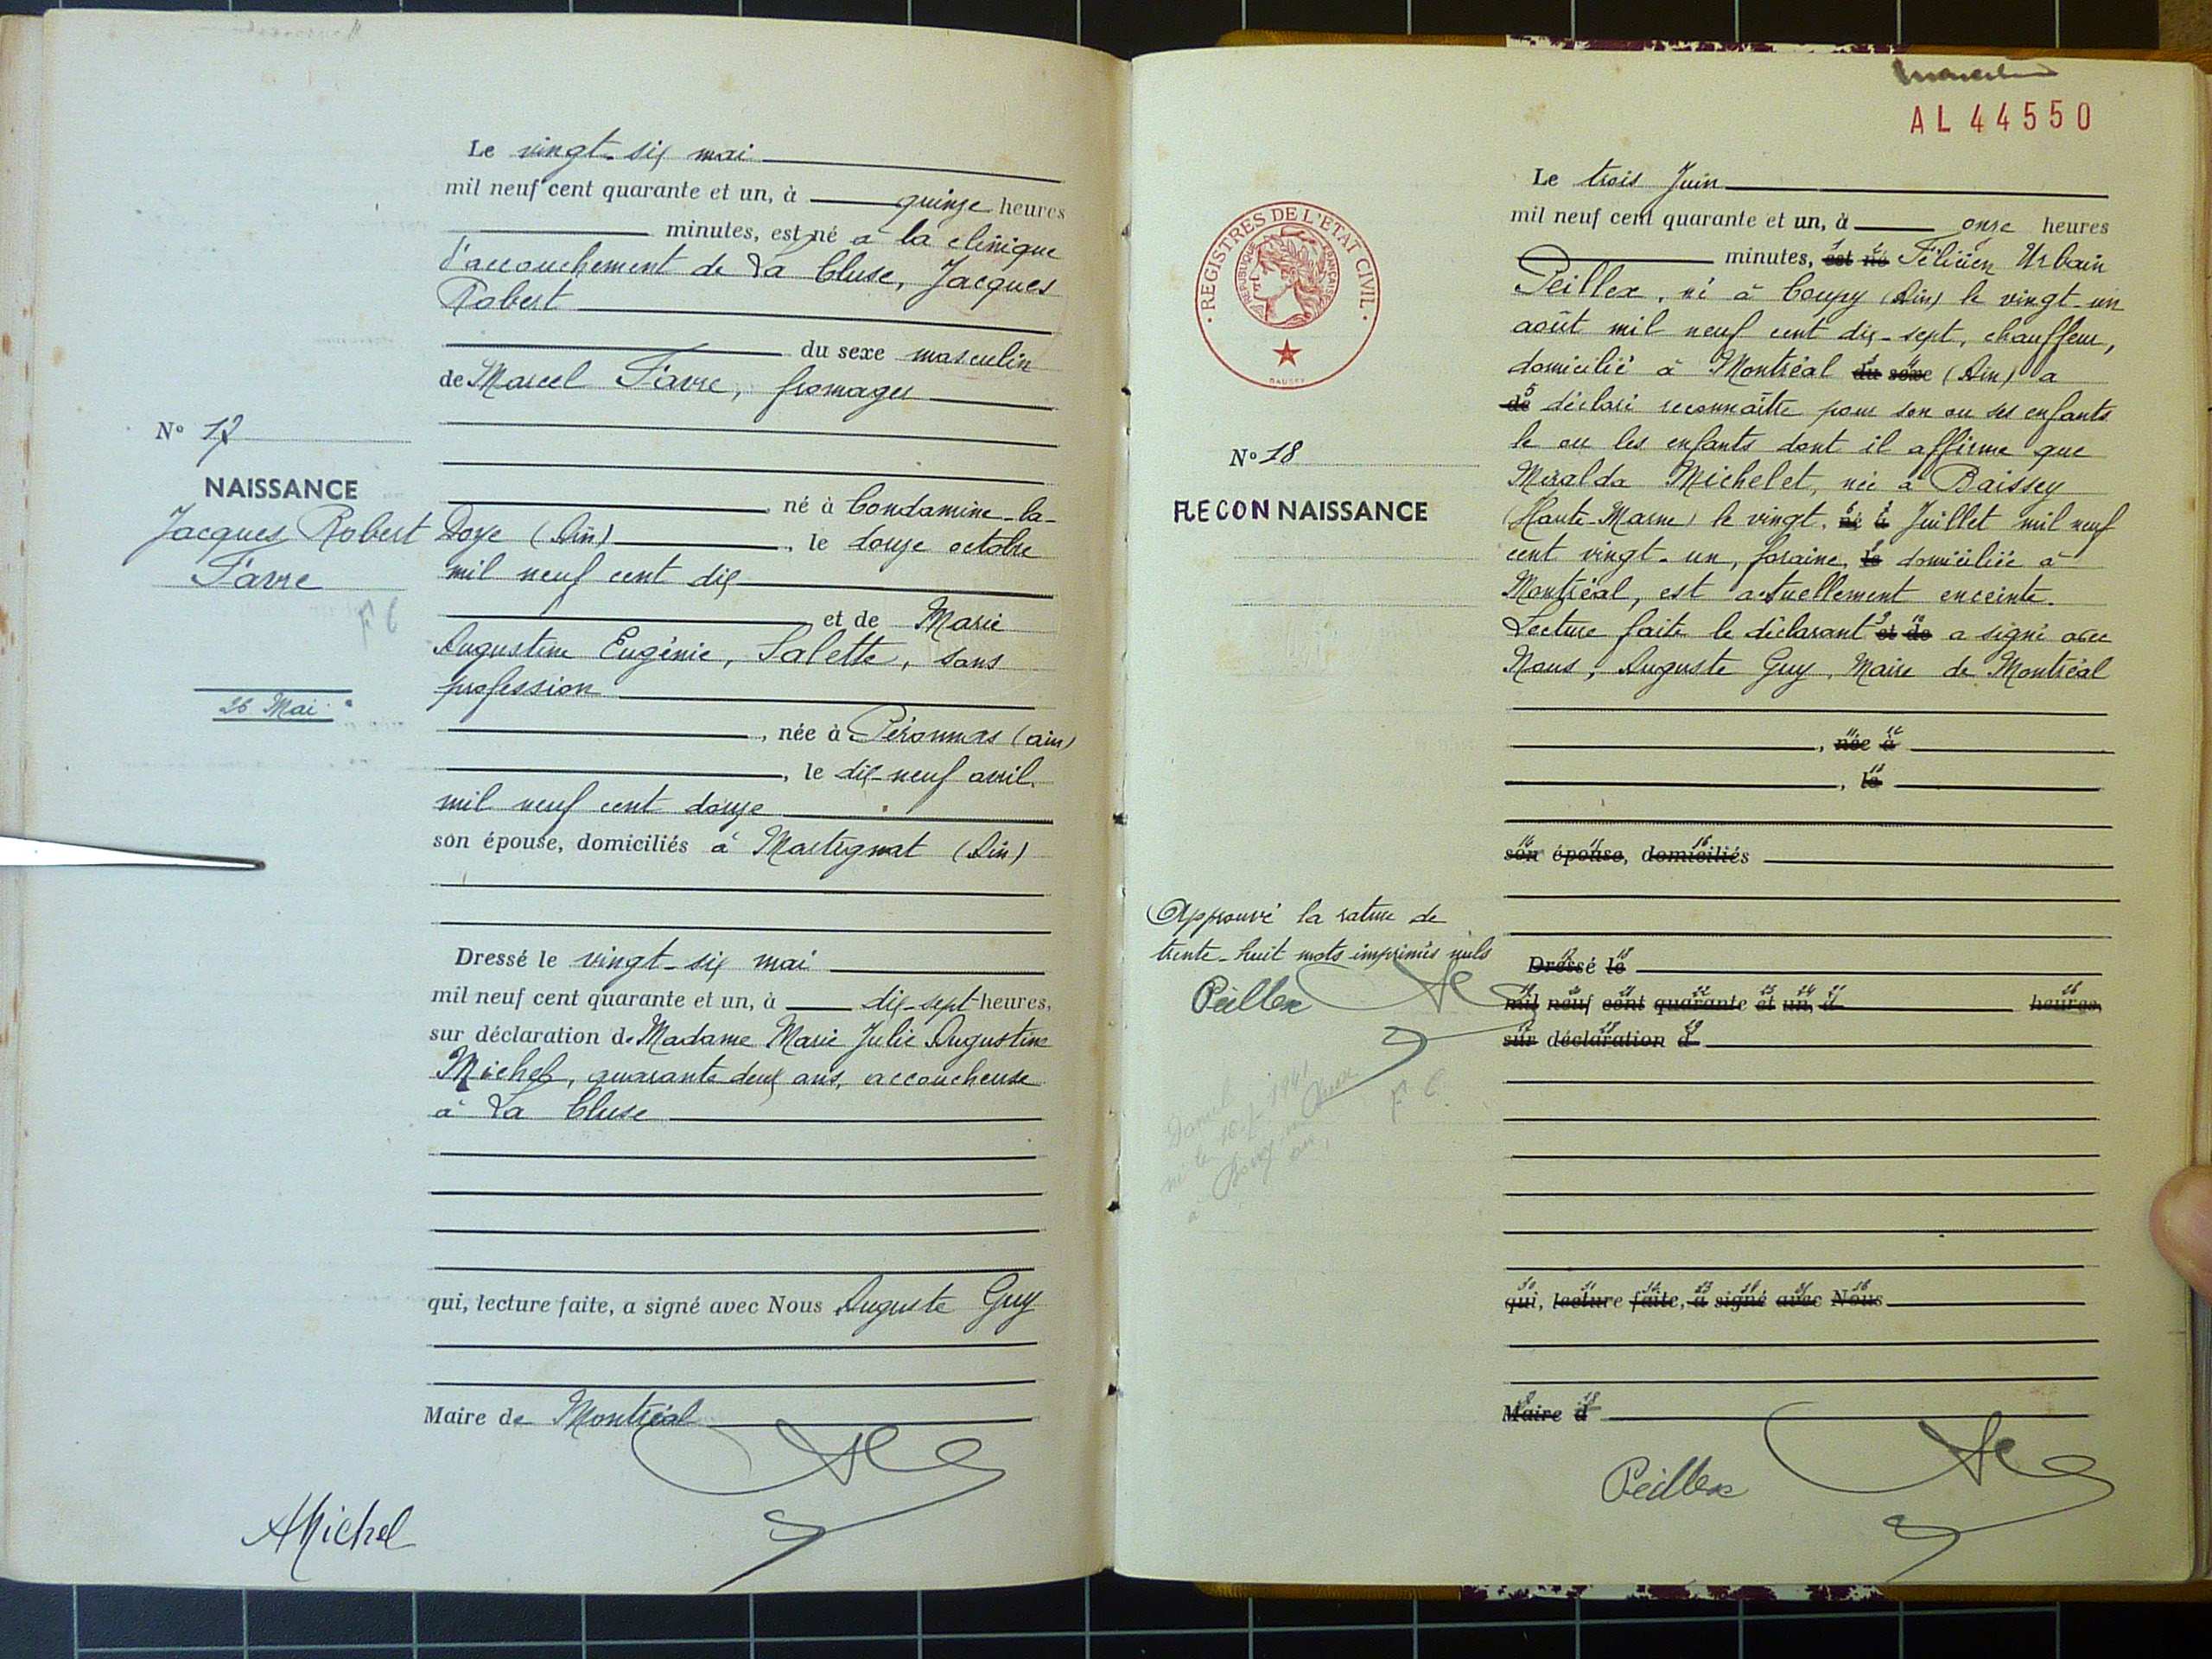 Le vingt-six mai
mil neuf cent quarante et un, à quinze heures
minutes, est né à la clinique
d'accouchement de La Cluse, Jacques
Robert
du sexe masculin
de Marcel Favre, fromager
né à Condamine-la-
Doye (Ain), le douze octobre
mil neuf cent dix
et de Marie
Augustine Eugénie, Salette, sans
profession
, née à Péronnas (ain)
, le dix-neuf avril
mil neuf cent douze
son épouse, domiciliés à Martignat (Ain)
Dressé le vingt-six mai
mil neuf cent quarante et un, à dix-sept heures,
sur déclaration de Madame Marie Julie Augustine
Michel, quarante deux ans, accoucheuse
à La Cluse
qui, lecture faite, a signé avec Nous Auguste Guy
Maire de Montréal
AMichel
N° 17
NAISSANCE
Jacques Robert
Favre
F C
26 Mai
AL 44550
REGISTRES DE L'ETAT CIVIL
REPUBLIQUE FRANÇAISE
Le trois Juin
mil neuf cent quarante et un, à onze heures
minutes, est né Félicien Urbain
Peillex, né à Coupy (Ain) le vingt-un
août mil neuf cent dix-sept, chauffeur,
domicilié à Montréal du sexe (Ain) a
de déclaré reconnaître pour son ou ses enfants
le ou les enfants dont il affirme que
Miralda Michelet, née à Baissey
(Haute-Marne) le vingt, né à Juillet mil neuf
cent vingt-un, foraine, le domiciliée à
Montréal, est actuellement enceinte.
Lecture faite le déclarant et de a signé avec
Nous, Auguste Guy, Maire de Montréal
, née à
, le
son épouse, domiciliés
Dressé le
mil neuf cent quarante et un, à heures,
sur déclaration d
qui, lecture faite, a signé avec Nous
Maire d
Peillex
N° 18
RECONNAISSANCE
Approuvé la rature de
trente-huit mots imprimés nuls
Peillex
né le 1941
F C.